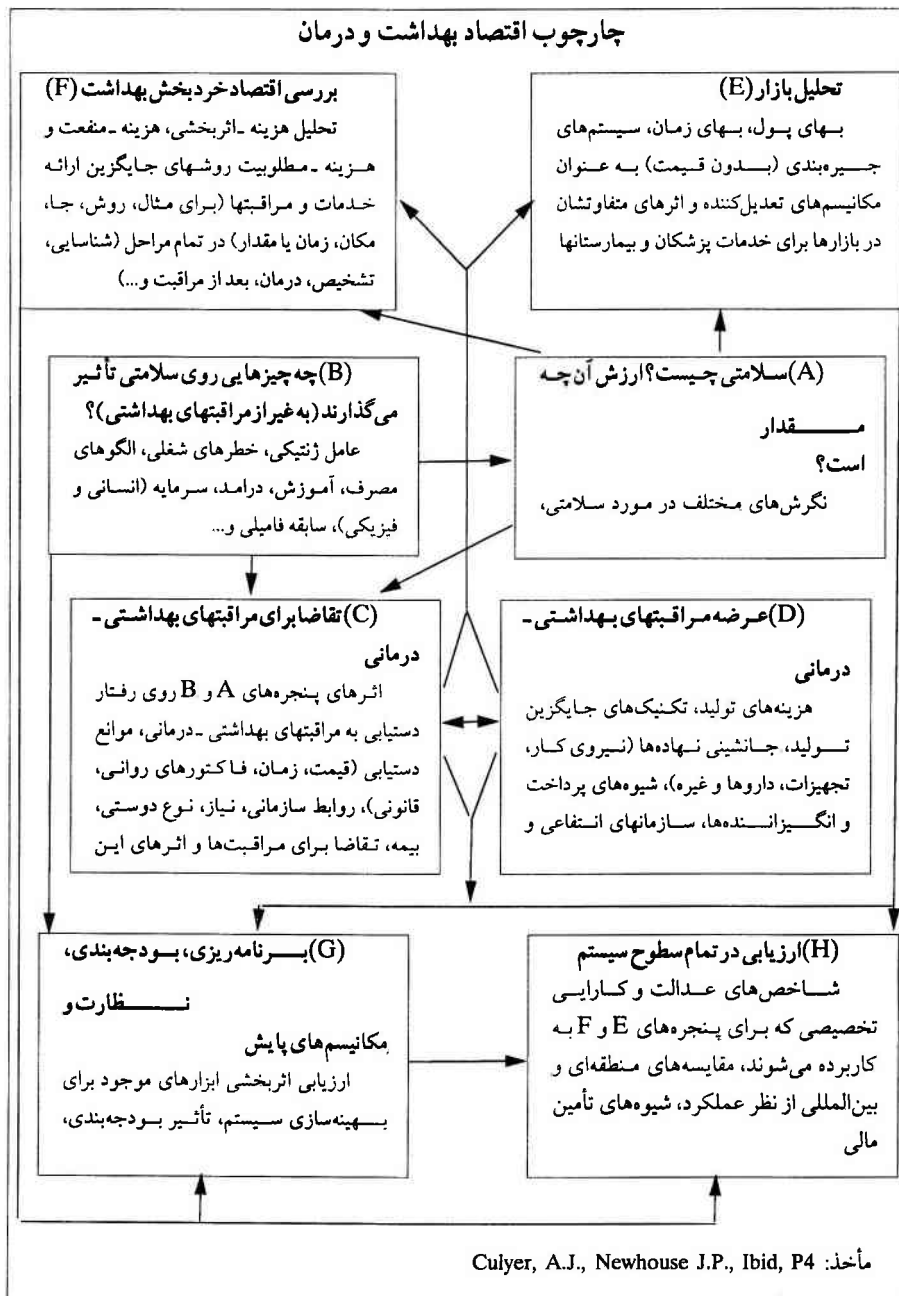 چارچوب اقتصاد بهداشت و درمان
تحلیل بازار (E)
بهای پول، بهای زمان، سیستم‌های
جیره‌بندی (بدون قیمت) به عنوان
مکانیسم‌های تعدیل‌کننده و اثرهای متفاوتشان
در بازارها برای خدمات پزشکان و بیمارستانها
بررسی اقتصاد خرد بخش بهداشت (F)
تحلیل هزینه ـ اثربخشی، هزینه ـ منفعت و
هزینه ـ مطلوبیت روشهای جایگزین ارائه
خدمات و مراقبتها (برای مثال، روش، جا،
مکان، زمان یا مقدار) در تمام مراحل (شناسایی،
تشخیص، درمان، بعد از مراقبت و...)
(A) سلامتی چیست؟ ارزش آن چه
مقدار
است؟
نگرش‌های مختلف در مورد سلامتی،
(B) چه چیزهایی روی سلامتی تأثیر
می‌گذارند (به غیر از مراقبتهای بهداشتی)؟
عامل ژنتیکی، خطرهای شغلی، الگوهای
مصرف، آموزش، درامد، سرمایه (انسانی و
فیزیکی)، سابقه فامیلی و...
(D) عرضه مراقبتهای بهداشتی ـ
درمانی
هزینه‌های تولید، تکنیک‌های جایگزین
تولید، جانشینی نهاده‌ها (نیروی کار،
تجهیزات، داروها و غیره)، شیوه‌های پرداخت
و انگیزاننده‌ها، سازمانهای انتفاعی و
(C) تقاضا برای مراقبتهای بهداشتی ـ
درمانی
اثرهای پنجره‌های A و B روی رفتار
دستیابی به مراقبتهای بهداشتی ـ درمانی، موانع
دستیابی (قیمت، زمان، فاکتورهای روانی،
قانونی)، روابط سازمانی، نیاز، نوع دوستی،
بیمه، تقاضا برای مراقبت‌ها و اثرهای این
(H) ارزیابی در تمام سطوح سیستم
شاخص‌های عدالت و کارایی
تخصیصی که برای پنجره‌های E و F به
کاربرده می‌شوند، مقایسه‌های منطقه‌ای و
بین‌المللی از نظر عملکرد، شیوه‌های تأمین
مالی
(G) برنامه‌ریزی، بودجه‌بندی،
نظارت و
مکانیسم‌های پایش
ارزیابی اثربخشی ابزارهای موجود برای
بهینه‌سازی سیستم، تأثیر بودجه‌بندی،
مأخذ: Culyer, A.J., Newhouse J.P., Ibid, P4